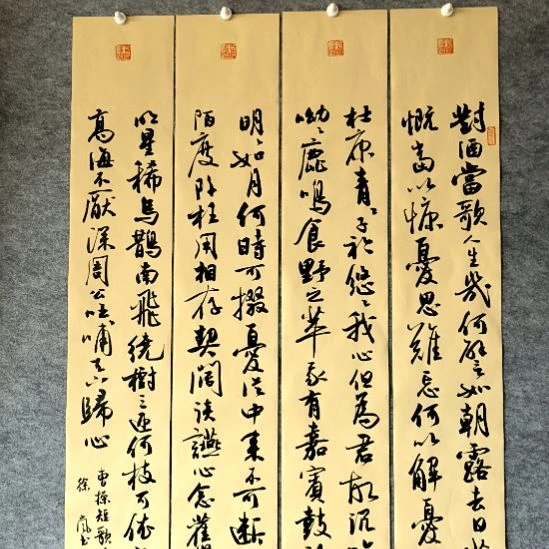 對酒當歌人生幾何譬如朝露去日
慨當以慷憂思難忘何以解憂
杜康青々子衿悠々我心但為君故沉
呦々鹿鳴食野之苹我有嘉賓鼓
明々如月何時可掇憂從中來不可斷
陌度阡枉用相存契闊談讌心念舊
明星稀烏鵲南飛繞樹三匝何枝可依
高海不厭深周公吐哺天下歸心
曹操短歌
徐嵐書